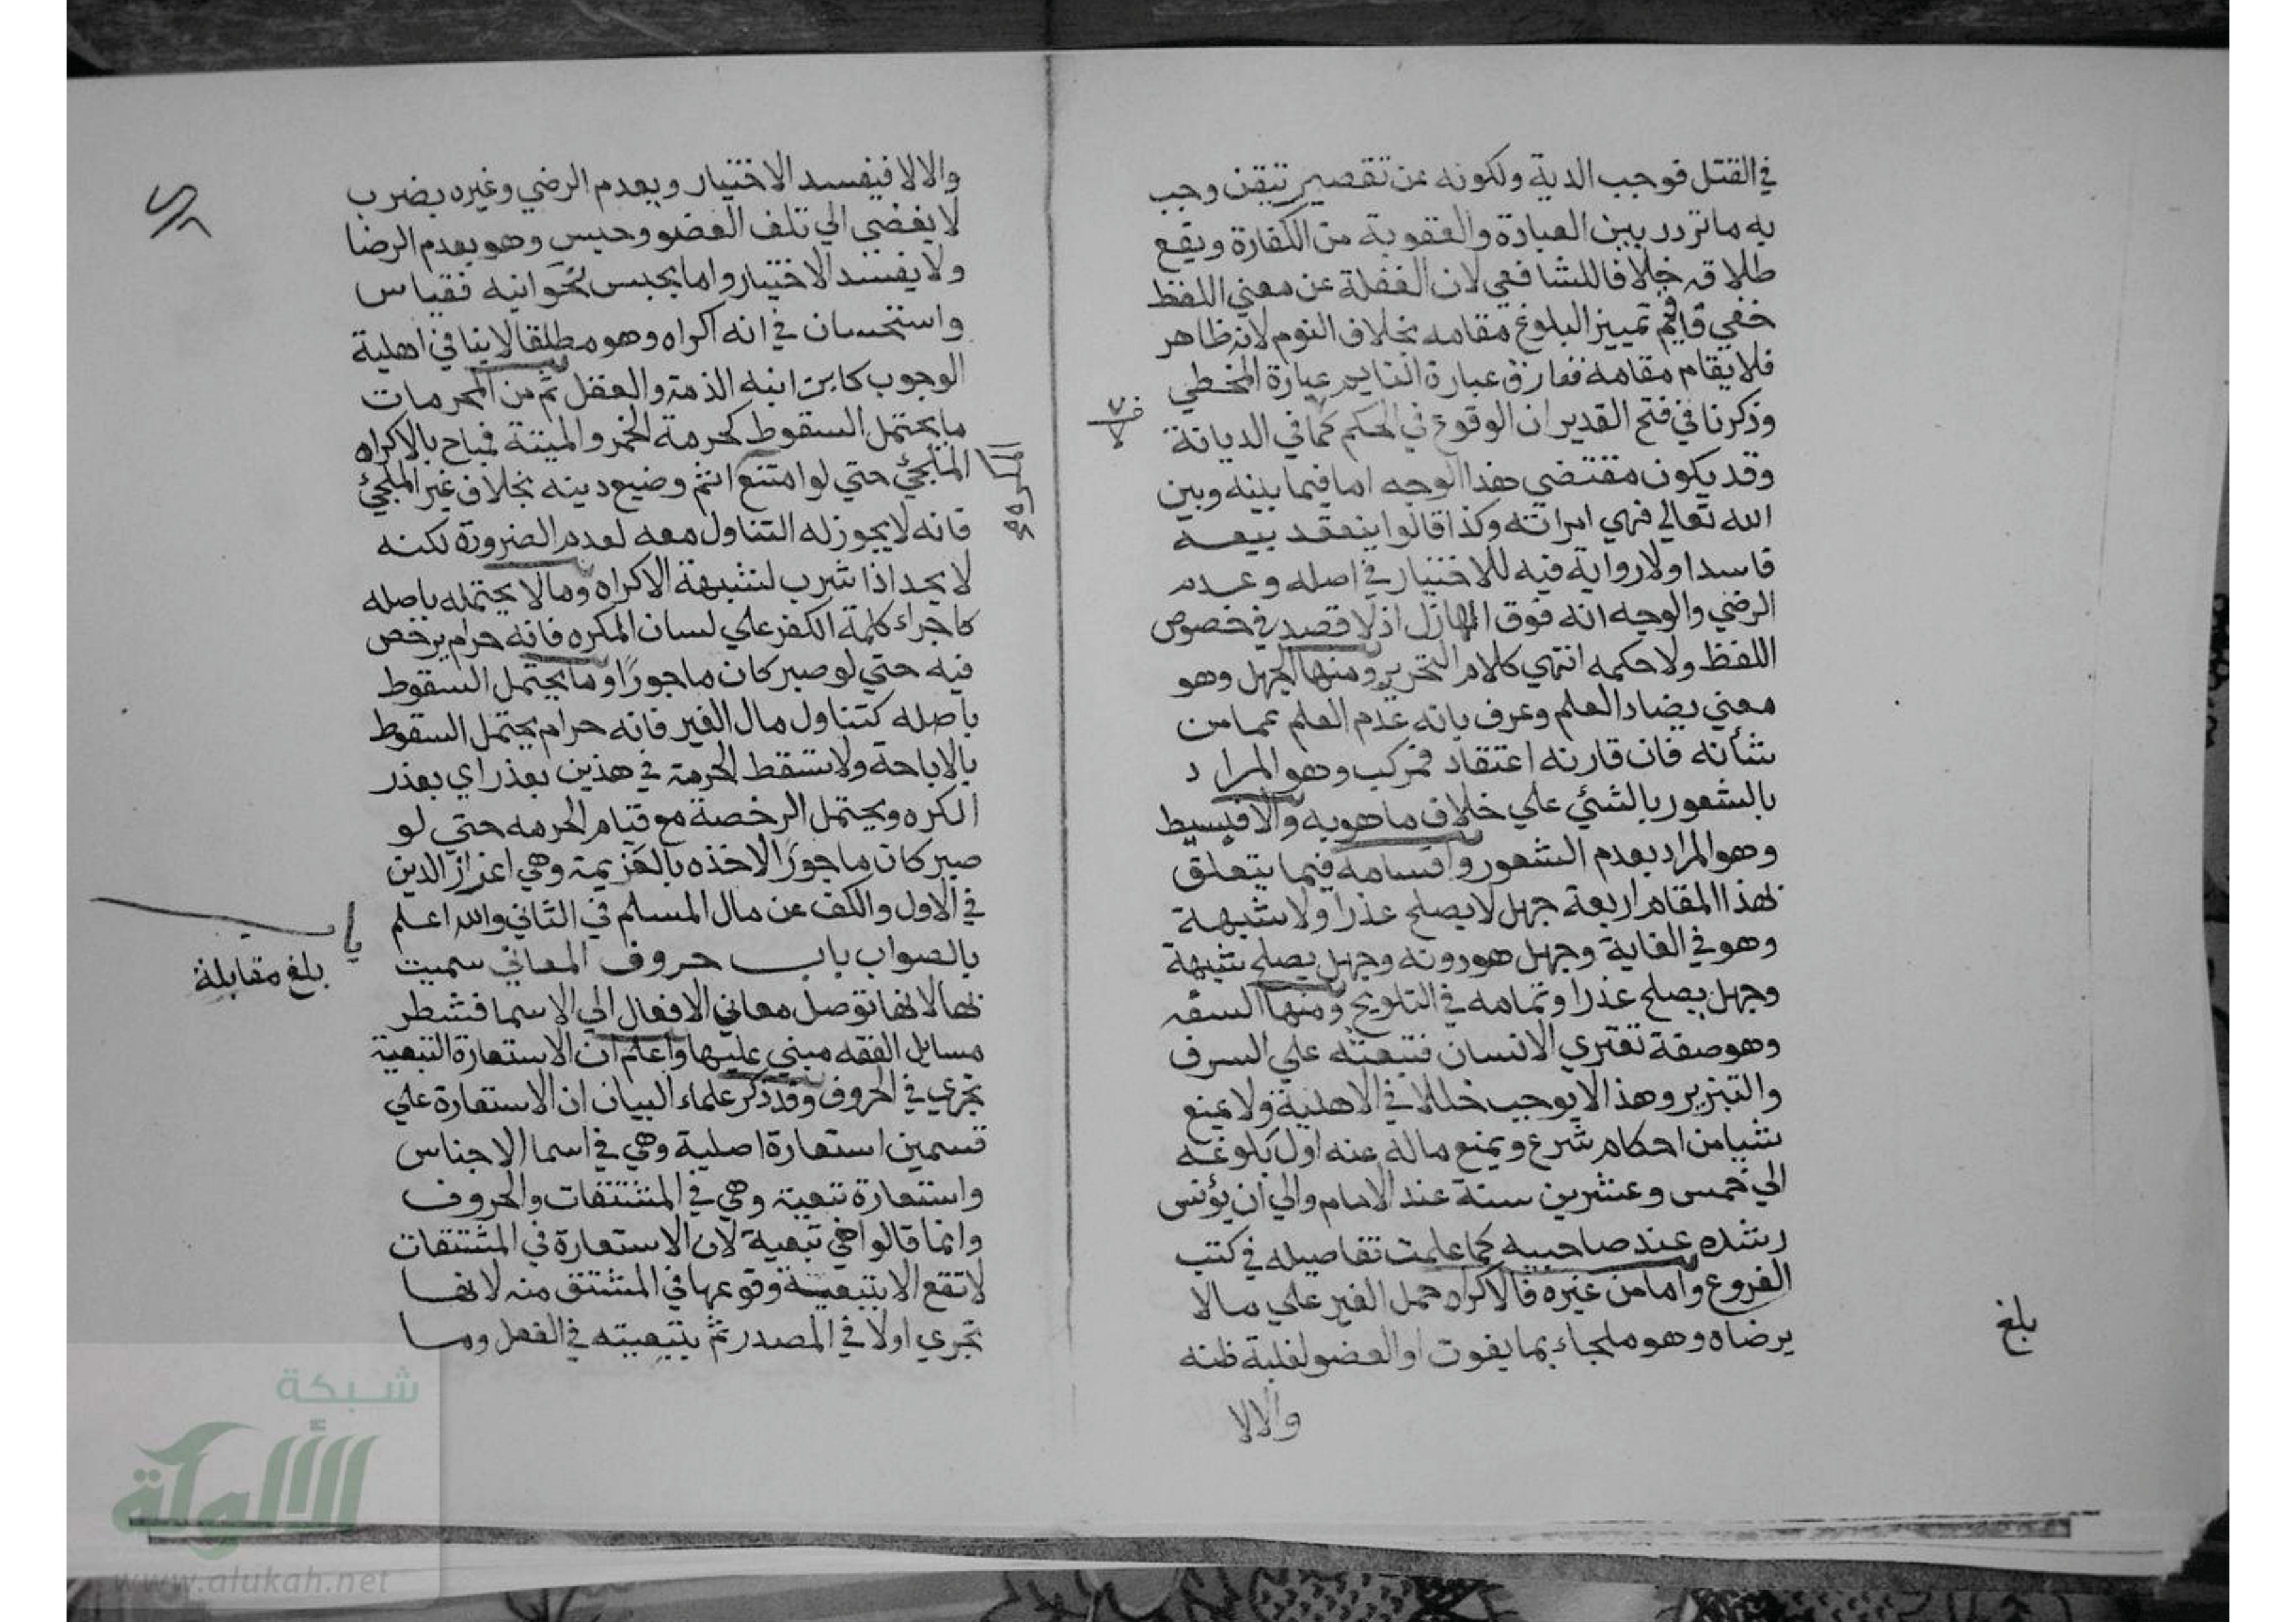 في القتل فوجب الدية ولكونه عن تقصير تيقن وجب
به ما تردد بين العبادة والعقوبة من الكفارة ويقع
طلاقه خلافا للشافعي لان الغفلة عن معني اللفظ
خفي فاقيم تمييز البلوغ مقامه بخلاف النوم لانه ظاهر
فلا يقام مقامه ففارق عبارة النايم عبارة المخطي
وذكرنا في فتح القدير ان الوقوع في الحكم كما في الديانة
وقد يكون مقتضي هذا الوجه اما فيما بينه وبين
الله تعالي فهي امراته وكذا قالوا ينعقد بيعه
فاسدا ولا رواية فيه للاختيار في اصله وعدم
الرضي والوجه انه فوق الهازل اذ لا قصد في خصوص
اللفظ ولا حكمه انتهي كلام التحرير ومنها الجهل وهو
معني يضاد العلم وعرف بانه عدم العلم عما من
شأنه فان قارنه اعتقاد فمركب وهو المراد
بالشعور بالشئي علي خلاف ما هو به والا فبسيط
وهو المراد بعدم الشعور واقسامه فيما يتعلق
بهذا المقام اربعة جهل لا يصلح عذرا ولا شبهة
وهو في الغاية وجهل هو دونه وجهل يصلح شبهة
وجهل يصلح عذرا وتمامه في التلويح ومنها السفه
وهو صفة تعتري الانسان فتبعثه علي السرف
والتبزير وهذا لا يوجب خللا في الاهلية ولا يمنع
شيا من احكام شرع ويمنع ماله عنه اول بلوغه
الي خمس وعشرين سنة عند الامام والي ان يؤنس
رشده عند صاحبيه كما علمت تفاصيله في كتب
الفروع واما من غيره فالاكراه حمل الغير علي ما لا
يرضاه وهو ملجاء بما يفوت او العضو لغلبة ظنه
والا لا
بلغ
والا لا فيفسد الاختيار ويعدم الرضي وغيره بضرب
لا يفضي الي تلف العضو وحبس وهو يعدم الرضا
ولا يفسد الاختيار واما بحبس نحو ابنيه فقياس
واستحسان في انه اكراه وهو مطلقا لا ينافي اهلية
الوجوب كاين انبه الذمة والعقل ثم من المحرمات
ما يحتمل السقوط كحرمة الخمر والميتة فيباح بالاكراه
الملجئ حتي لو امتنع اثم وضيع دينه بخلاف غير الملجئ
فانه لا يجوز له التناول معه لعدم الضرورة لكنه
لا يحد اذا شرب لشبهة الاكراه وما لا يحتمله باصله
كاجراء كلمة الكفر علي لسان المكره فانه حرام يرخص
فيه حتي لو صبر كان ماجورًا وما يحتمل السقوط
باصله كتناول مال الغير فانه حرام يحتمل السقوط
بالاباحة ولا تسقط الحرمة في هذين بعذر اي بعذر
الكره ويحتمل الرخصة مع قيام الحرمه حتي لو
صبر كان ماجورًا لاخذه بالعزيمة وهي اعزاز الدين
في الاول والكف عن مال المسلم في الثاني والله اعلم
بالصواب باب حروف المعاني سميت
بها لانها توصل معاني الافعال الي الاسما فشطر
مسايل الفقه مبني عليها واعلم ان الاستعارة التبعية
تجري في الحروف وقد ذكر علماء البيان ان الاستعارة علي
قسمين استعارة اصلية وهي في اسما الاجناس
واستعارة تبعية وهي في المشتقات والحروف
وانما قالوا هي تبعية لان الاستعارة في المشتقات
لا تقع الا بتبعية وقوعها في المشتق منه لانها
تجري اولا في المصدر ثم بتبعيته في الفعل وما
بلغ مقابلة
شبكة
الألوكة
www.alukah.net